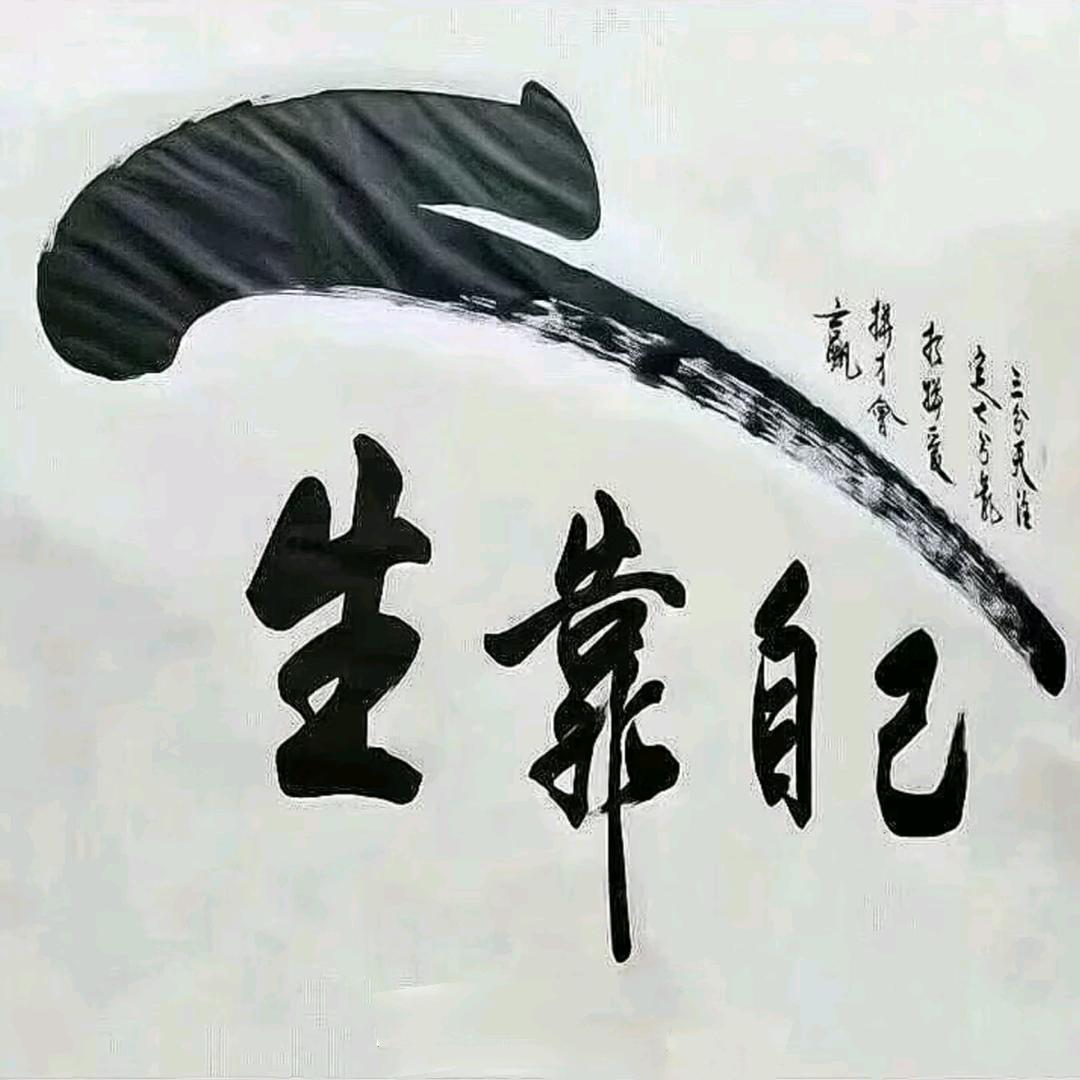 人生靠自己
三分天注
定七分靠
打拼愛
拼才會
贏